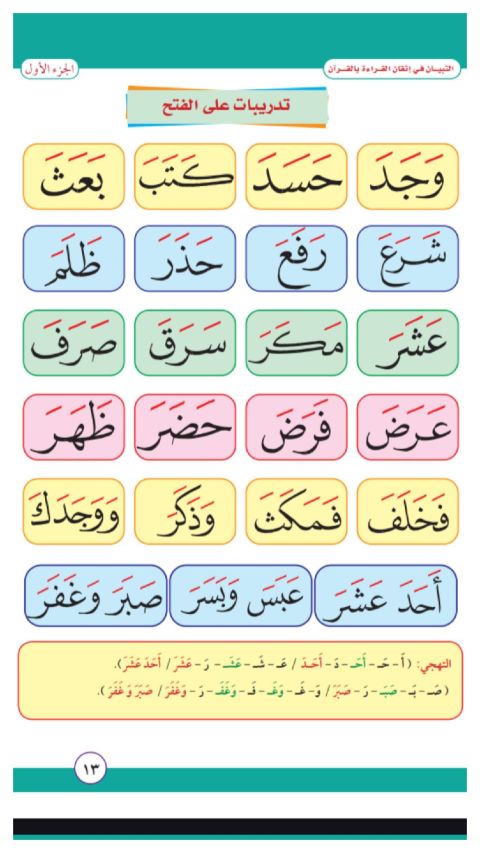 التبيـان في إتقان القـراءة بالقـرآن
الجزء الأول
تدريبات على الفتح
وَجَدَ حَسَدَ كَتَبَ بَعَثَ
شَرَعَ رَفَعَ حَذَرَ ظَلَمَ
عَشَرَ مَكَرَ سَرَقَ صَرَفَ
عَرَضَ فَرَضَ حَضَرَ ظَهَرَ
فَخَلَفَ فَمَكَثَ وَذَكَرَ وَوَجَدَكَ
أَحَدَ عَشَرَ عَبَسَ وَبَسَرَ صَبَرَ وَغَفَرَ
التهجي: (أَ - حَـ - أَحَـ - دَ - أَحَـدَ / عَـ - شَـ - عَشَـ - رَ - عَشَرَ / أَحَدَ عَشَرَ).
(صَـ - بَـ - صَبَـ - رَ - صَبَرَ / وَ - غَـ - وَغَـ - فَـ - وَغَفَـ - رَ - وَغَفَرَ / صَبَرَ وَ غَفَرَ).
١٣